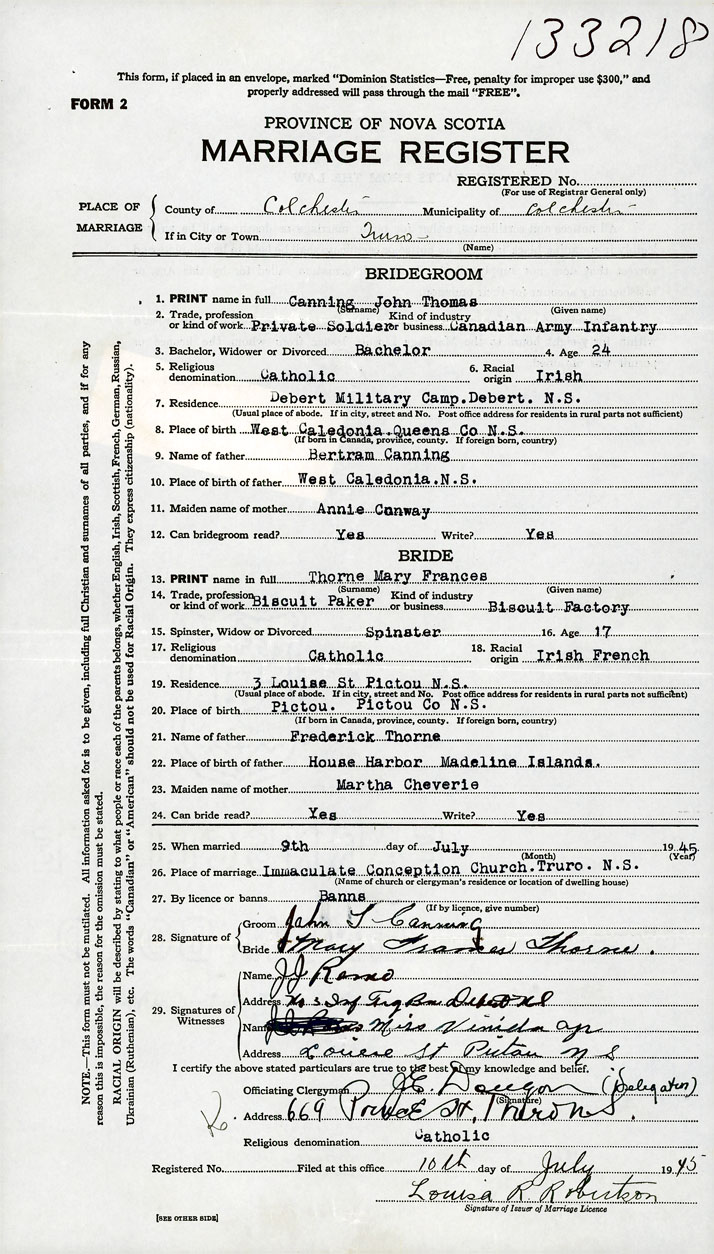 133218
This form, if placed in an envelope, marked "Dominion Statistics—Free, penalty for improper use $300," and
properly addressed will pass through the mail "FREE".
FORM 2
PROVINCE OF NOVA SCOTIA
MARRIAGE REGISTER
REGISTERED No.
(For use of Registrar General only)
PLACE OF MARRIAGE
County of Colchester Municipality of Colchester
If in City or Town Truro
(Name)
BRIDEGROOM
1. PRINT name in full Canning John Thomas
(Surname) (Given name)
2. Trade, profession or kind of work Private Soldier Kind of industry or business Canadian Army Infantry
3. Bachelor, Widower or Divorced Bachelor 4. Age 24
5. Religious denomination Catholic 6. Racial origin Irish
7. Residence Debert Military Camp.Debert. N.S.
(Usual place of abode. If in city, street and No. Post office address for residents in rural parts not sufficient)
8. Place of birth West Caledonia.Queens Co N.S.
(If born in Canada, province, county. If foreign born, country)
9. Name of father Bertram Canning
10. Place of birth of father West Caledonia.N.S.
11. Maiden name of mother Annie Conway
12. Can bridegroom read? Yes Write? Yes
BRIDE
13. PRINT name in full Thorne Mary Frances
(Surname) (Given name)
14. Trade, profession or kind of work Biscuit Paker Kind of industry or business Biscuit Factory
15. Spinster, Widow or Divorced Spinster 16. Age 17
17. Religious denomination Catholic 18. Racial origin Irish French
19. Residence 3 Louise St Pictou N.S.
(Usual place of abode. If in city, street and No. Post office address for residents in rural parts not sufficient)
20. Place of birth Pictou. Pictou Co N.S.
(If born in Canada, province, county. If foreign born, country)
21. Name of father Frederick Thorne
22. Place of birth of father House Harbor Madeline Islands.
23. Maiden name of mother Martha Cheverie
24. Can bride read? Yes Write? Yes
25. When married 9th day of July 1945
(Month) (Year)
26. Place of marriage Immaculate Conception Church.Truro. N.S.
(Name of church or clergyman's residence or location of dwelling house)
27. By licence or banns Banns
(If by licence, give number)
28. Signature of
Groom John T Canning
Bride Mary Frances Thorne.
29. Signatures of Witnesses
Name JJ
Address No 3 Inf Trg Bn Debert NS
Name Miss
Address Louise St Pictou N S
I certify the above stated particulars are true to the best of my knowledge and belief.
Officiating Clergyman J.E. (Delegated)
(Signature)
Address 669 Prince St, Truro N.S.
Religious denomination Catholic
Registered No. Filed at this office 10th day of July 1945
Louisa R. Robertson
Signature of Issuer of Marriage Licence
[SEE OTHER SIDE]
NOTE.—This form must not be mutilated. All information asked for is to be given, including full Christian and surnames of all parties, and if for any
reason this is impossible, the reason for the omission must be stated.
RACIAL ORIGIN will be described by stating to what people or race each of the parents belongs, whether English, Irish, Scottish, French, German, Russian,
Ukrainian (Ruthenian), etc. The words "Canadian" or "American" should not be used for Racial Origin. They express citizenship (nationality).